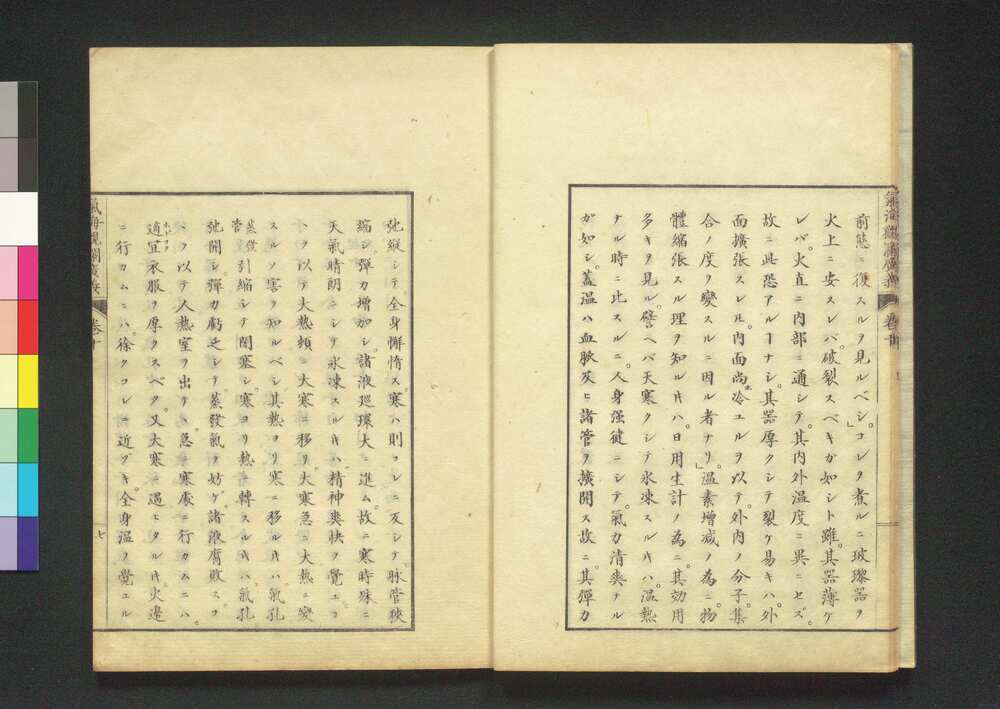 前態ニ復スルヲ見ルベシ。」コレヲ煮ルニ玻瓈器ヲ
火上ニ安スレバ。破裂スベキガ如シト雖。其器薄ケ
レバ。火直ニ内部ニ通シテ。其内外温度ニ異ニセズ。
故ニ此恐アルヿナシ。其器厚クシテ裂ケ易キハ。外
面擴張スレ𪜈。内面尚冷ユルヲ以テ。外内ノ分子。集
合ノ度ヲ變スルニ因ル者ナリ。」温素増減ノ為ニ。物
體縮張スル理ヲ知ル𪜈ハ。日用生計ノ為ニ。其効用
多キヲ見ル。譬ヘバ天寒クシテ氷凍スル𪜈ハ。温熱
ナル時ニ比スルニ。人身強健ニシテ。氣力清爽ナル
ガ如シ。蓋温ハ血脈及ヒ諸管ヲ擴開ス故ニ。其彈力
氣海觀瀾廣義
卷十
弛縦シテ全身懈惰ス。寒ハ則コレニ反シテ。脉管狹
縮シ彈力増加シ。諸液巡環大ニ進ム。故ニ寒時殊ニ
天氣晴朗ニシテ氷凍スル𪜈ハ。精神爽快ヲ覺ユ。コ
ヽヲ以テ大熱頓ニ大寒ニ移リ。大寒急ニ大熱ニ變
スルノ害ヲ知ルベシ。其熱ヨリ寒ニ移ル𪜈ハ。氣孔
蒸發管引縮シテ閉塞シ。寒ヨリ熱ニ轉スル𪜈ハ。氣孔
弛開シ彈力虧乏シテ。蒸發氣ヲ妨ゲ。諸液腐敗ス。コ
ヽヲ以テ人熱室ヲ出テヽ。急ニ寒處ニ行カムニハ。
適宜衣服ヲ厚クスベク。又大寒ニ遇ヒタル𪜈火邊
ニ行カムニハ。徐クコレニ近ヅキ。全身温ヲ覺ユル
氣海觀瀾廣義
卷十
七